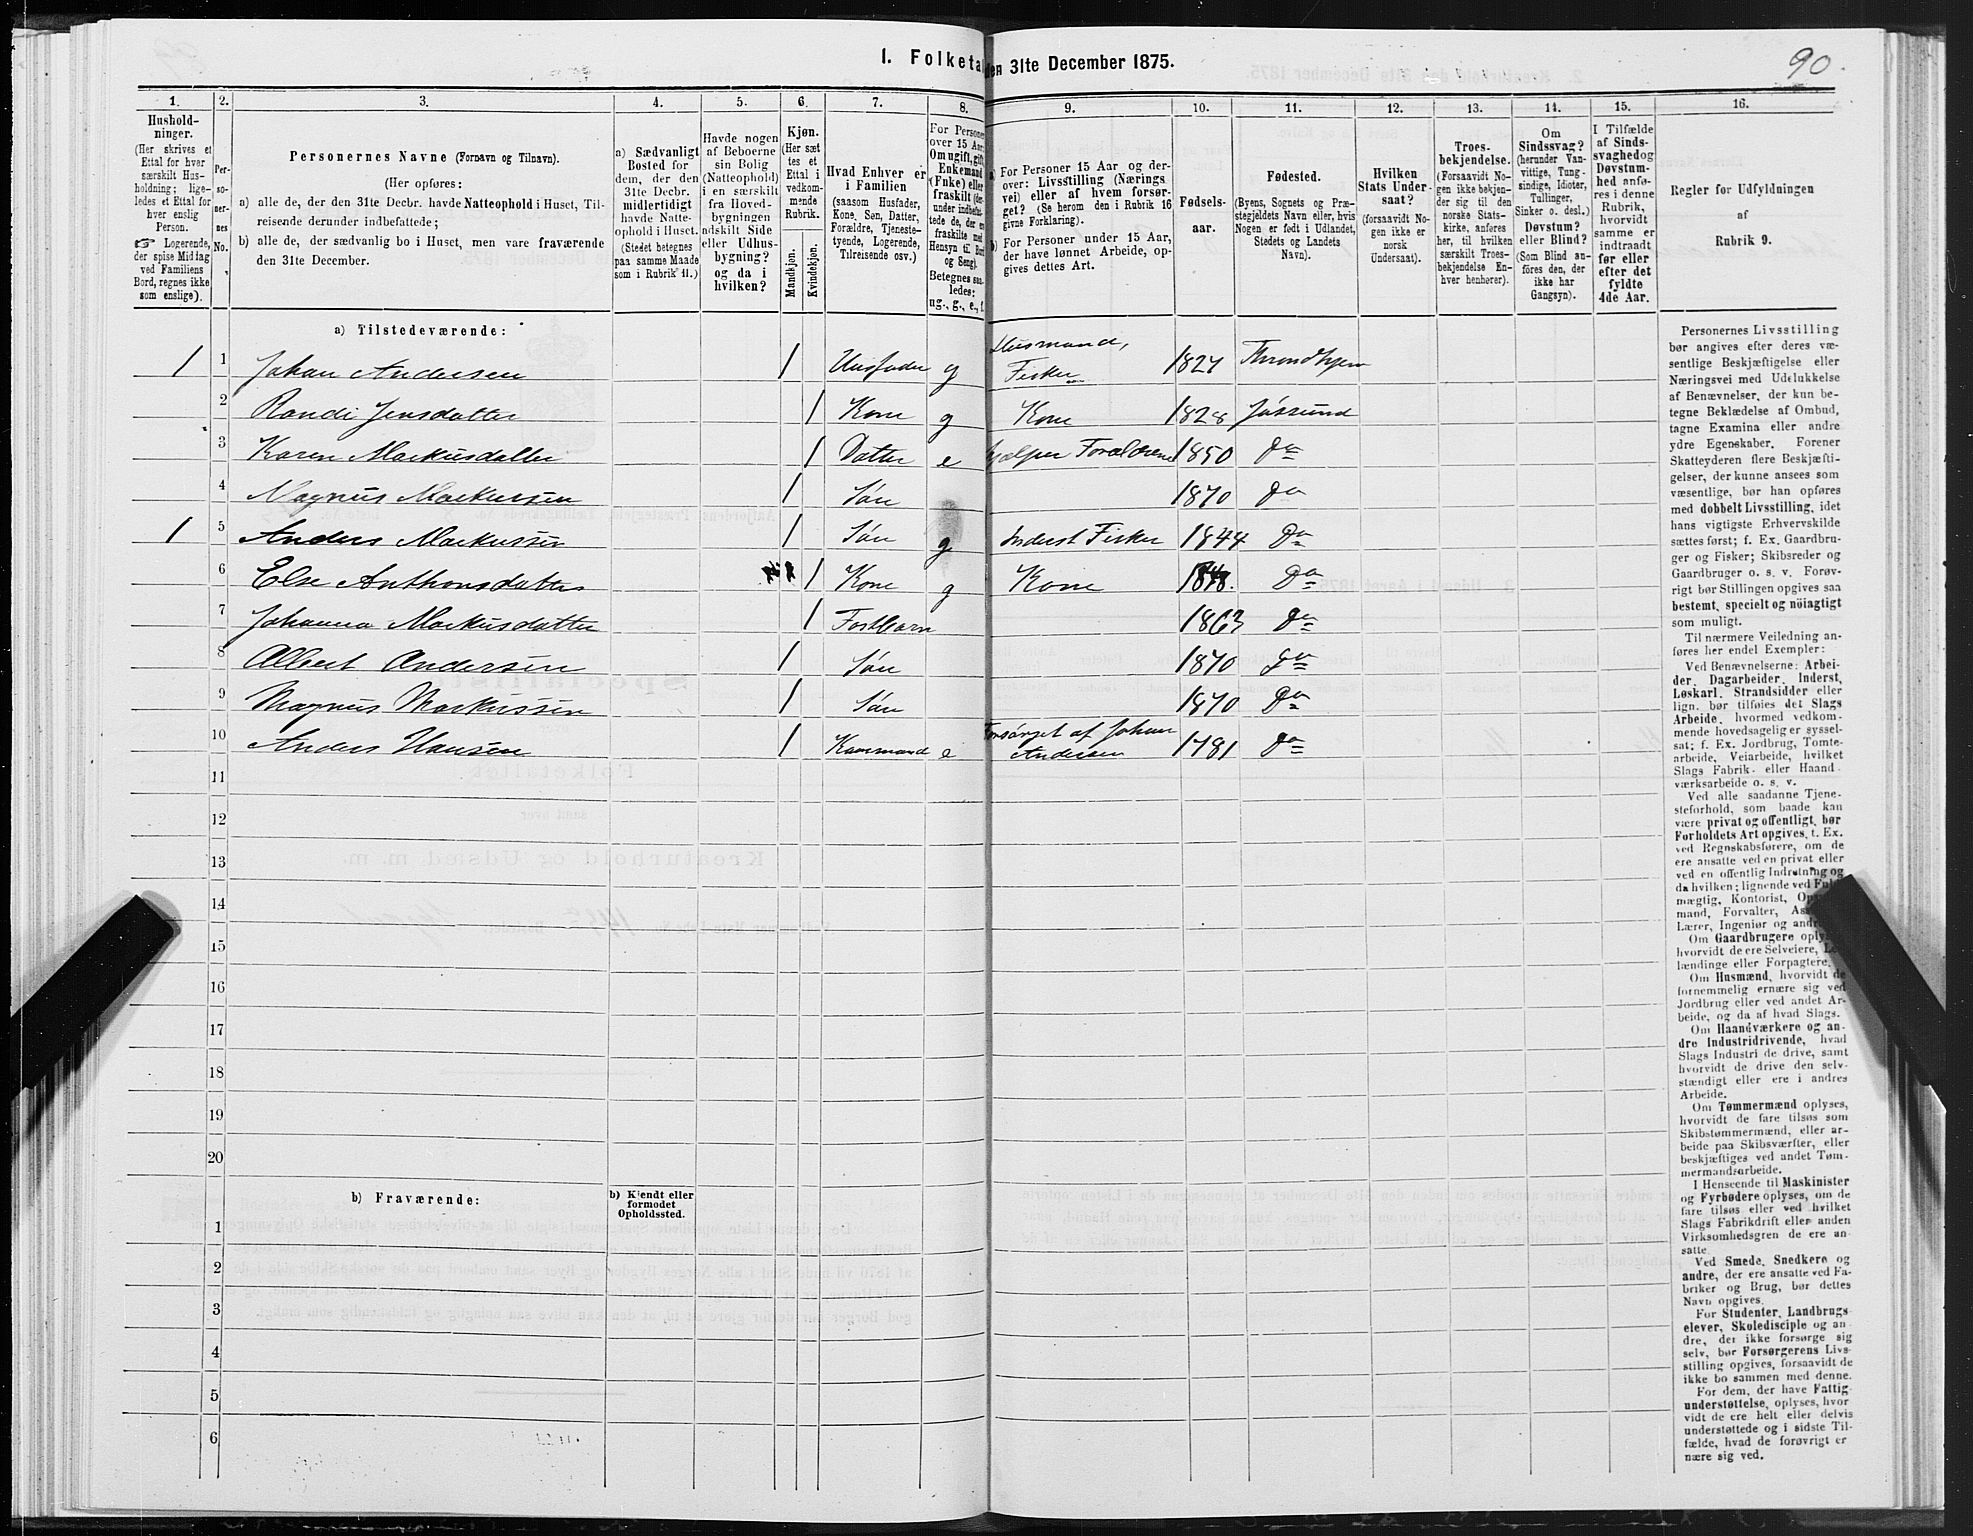 90.
I. Folketal den 31te December 1875.
1. 2. 3. 4. 5. 6. 7. 8. 9. 10. 11. 12. 13. 14. 15. 16.
Hushold-
ninger.
(Her skrives et
Ettal for hver
særskilt Hus-
holdning; lige-
ledes et Ettal for
hver enslig
Person.
☞ Logerende,
der spise Middag
ved Familiens
Bord, regnes ikke
som enslige).
Per-
so-
ner-
nes
No.
Personernes Navne (Fornavn og Tilnavn).
(Her opføres:
a) alle de, der den 31te Decbr. havde Natteophold i Huset, Til-
reisende derunder indbefattede;
b) alle de, der sædvanlig bo i Huset, men vare fraværende
den 31te December.
a) Sædvanligt
Bosted for
dem, der den
31te Decbr.
midlertidigt
havde Natte-
ophold i Huset.
(Stedet betegnes
paa samme Maade
som i Rubrik 11.)
Havde nogen
af Beboerne
sin Bolig
(Natteophold)
i en særskilt
fra Hoved-
bygningen
adskilt Side
eller Udhus-
bygning?
og da i
hvilken?
Kjøn.
(Her sæt
tes et
Ettal i
vedkom-
mende
Rubrik.
Mandkjøn.
Kvindekjøn.
Hvad Enhver er
i Familien
(saasom Husfader,
Kone, Søn, Datter,
Forældre, Tjeneste-
tyende, Logerende,
Tilreisende osv.)
For Personer
over 15 Aar:
Om ugift, gift,
Enkemand
(Enke) eller
fraskilt (der-
under indbefat-
tede de, der ere
fraskilte med
Hensyn til Bord
og Seng).
Betegnes saa-
ledes:
ug., g., e., f.
a) For Personer 15 Aar og der-
over: Livsstilling (Nærings
vei) eller af hvem forsør-
get? (Se herom den i Rubrik 16
givne Forklaring).
b) For Personer under 15 Aar,
der have lønnet Arbeide, op-
gives dettes Art.
Fødsels-
aar.
Fødested.
(Byens, Sognets og Præ-
stegjeldets Navn eller, hvis
Nogen er født i Udlandet,
Stedets og Landets
Navn).
Hvilken
Stats Under-
saat?
(forsaavidt No-
gen ikke er
norsk
Undersaat).
Troes-
bekjendelse.
(Forsaavidt No-
gen ikke bekjen-
der sig til den
norske Stats-
kirke, anføres
her, til hvilken
særskilt Troes-
bekjendelse En-
hver henhører).
Om
Sindssvag?
(herunder Van-
vittige, Tung-
sindige, Idioter,
Tullinger,
Sinker o. desl.)
Døvstum?
eller Blind?
(Som Blind an-
føres den, der
ikke har
Gangsyn).
I Tilfælde
af Sinds-
svaghed og
Døvstum-
hed anfø-
res i denne
Rubrik,
hvorvidt
samme er
indtraadt
før eller
efter det
fyldte
4de Aar.
Regler for Udfyldningen
af
Rubrik 9.
a) Tilstedeværende:
1 1 Johan Andersen 1 Husfader g Husmand, Fisker 1827 Throndhjem
2 Randi Jensdatter 1 Kone g Kone 1828 Jøssund
3 Karen Markusdatter 1 Datter e hjælper Forældrene 1850 Do
4 Magnus Markussen 1 Søn 1870 Do
1 5 Anders Markussen 1 Søn g Inderst Fisker 1844 Do
6 Else Anthonsdatter 1 Kone g Kone Do
7 Johanna Markusdatter 1 Fostbarn 1863 Do
8 Albert Andersen 1 Søn 1870 Do
9 Magnus Markussen 1 Søn 1870 Do
10 Anders Hansen 1 Kaarmand e Forsørget af Johan Andersen 1781 Do
11
12
13
14
15
16
17
18
19
20
b) Fraværende:
b) Kjendt eller
formodet
Opholdssted.
1
2
3
4
5
6
Personernes Livsstilling
bør angives efter deres væ-
sentlige Beskjæftigelse eller
Næringsvei med Udelukkelse
af Benævnelser, der kun be-
tegne Beklædelse af Ombud,
tagne Examina eller andre
ydre Egenskaber. Forener
Skatteyderen flere Beskjæfti-
gelser, der kunne ansees som
væsentlige, bør han opføres
med dobbelt Livsstilling, idet
hans vigtigste Erhvervskilde
sættes først; f. Ex. Gaardbru-
ger og Fisker; Skibsreder og
Gaardbruger o. s. v. Forøv-
rigt bør Stillingen opgives saa
bestemt, specielt og nøiagtigt
som muligt.
Til nærmere Veiledning an-
føres her endel Exempler:
Ved Benævnelserne: Arbei-
der, Dagarbeider, Inderst,
Løskarl, Strandsidder eller
lign. bør tilføies det Slags
Arbeide, hvormed vedkom-
mende hovedsagelig er syssel-
sat; f. Ex. Jordbrug, Tomte-
arbeide, Veiarbeide, hvilket
Slags Fabrik- eller Haand-
værksarbeide o. s. v.
Ved alle saadanne Tjene-
steforhold, som baade kan
være privat og offentligt, bør
Forholdets Art opgives, t. Ex.
ved Regnskabsførere, om de
ere ansatte ved en privat eller
ved en offentlig Indretning og
da hvilken; lignende ved
mægtig, Kontorist,
mand, Forvalter,
Lærer, Ingeniør og
Om Gaardbrugere
hvorvidt de ere Selveiere,
lændinge eller Forpagtere.
Om Husmænd, hvorvidt de
fornemmelig ernære sig ved
Jordbrug eller ved andet Ar-
beide, og da af hvad Slags.
Om Haandværkere og an-
dre Industridrivende, hvad
Slags Industri de drive, samt
hvorvidt de drive den selv-
stændigt eller ere i andres
Arbeide.
Om Tømmermænd oplyses,
hvorvidt de fare tilsøs som
Skibstømmermænd, eller ar-
beide paa Skibsværfter, eller
beskjæftiges ved andet Tøm-
mermandsarbeide.
I Henseende til Maskinister
og Fyrbødere oplyses, om de
fare tilsøs eller ved hvilket
Slags Fabrikdrift eller anden
Virksomhedsgren de ere an-
satte.
Ved Smede, Snedkere og
andre, der ere ansatte ved Fa-
briker og Brug, bør dettes
Navn opgives.
For Studenter, Landbrugs-
elever, Skoledisciple og an-
dre, der ikke forsørge sig
selv, bør Forsørgerens Livs-
stilling opgives, forsaavidt de
ikke bo sammen med denne.
For dem, der have Fattig-
understøttelse, oplyses, hvor
vidt de ere helt eller delvis
understøttede og i sidste Til-
fælde, hvad de forøvrigt er
nære sig ved.